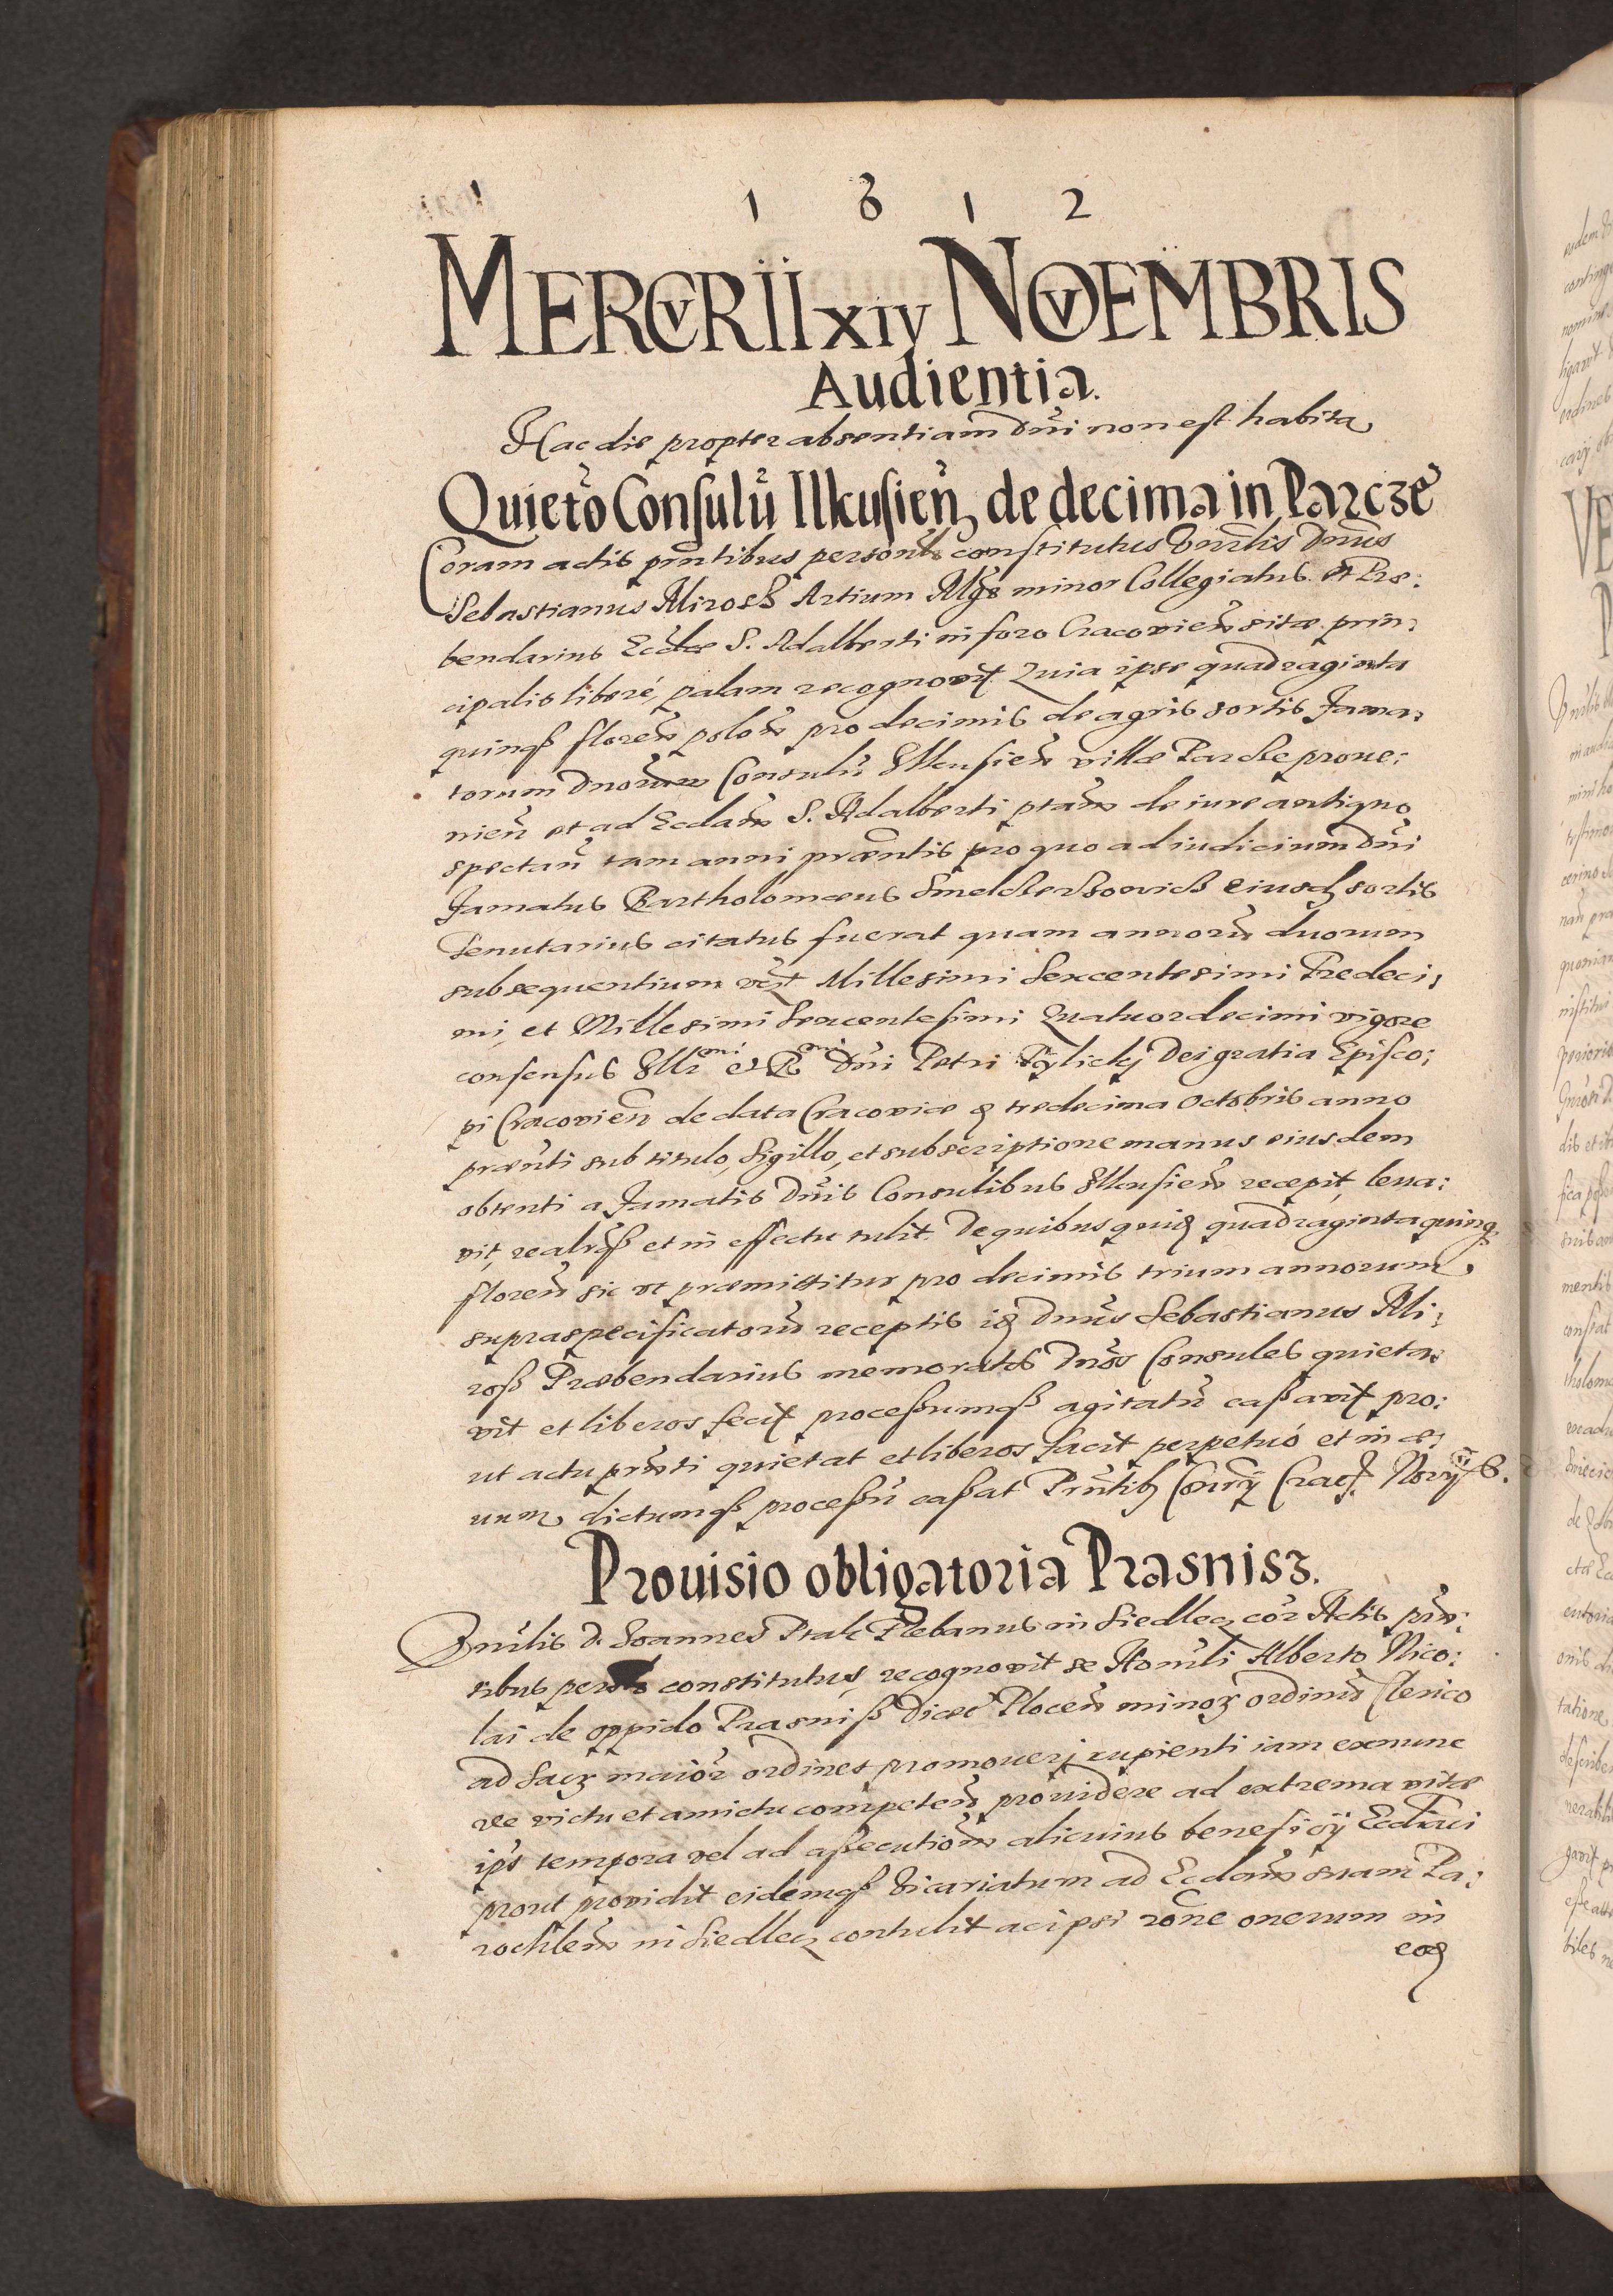 1 6 1 2
MERCVRII xiv NOVEMBRIS
Audientia.
Hac die propter absentiam Dni non est habita
Quietõ Consulũ Ilkusieñ de decima in Parcze
Coram actis pñtibus personlr constitutus Vnrlis Dnus
Sebastianus Mirosz Artium Mgr minor Collegiatus et Præ:
bendarius Ecclæ S. Adalberti in foro Cracovieñ sitæ prin:
cipalis liberé, palam recognovit Quia ipse quadraginta
quinqȝ floreñ poloñ pro decimis de agris sortis Fama:
torum Dnorum Consulũ Ilkusieñ villæ Parcze prove:
nieñ et ad Eccłam S. Adalberti ptam de iure antiquo
spectañ tam anni præntis pro quo ad iudicium Dni
Famatus Bartholomæus Smelcerzowicz eiusdȝ sortis
Tenutarius citatus fuerat quam annorũ duorum
subsequentium vȝt Millesimi Sexcentesimi Tredeci:
mi, et Millesimi Sexcentesimi Quatuordecimi vigore
consensus Illr mi et R mi Dni Petri Tylicky Dei gratia Episco:
pi Cracovieñ de data Cracoviæ 9 tredecima Octobris anno
præñti sub titulo, Sigillo, et subscriptione manus eiusdem
obtenti a Famatis Dnis Consulibus Ilkusieñ recepit, leva:
vit, realrqȝ et in effectu tulit. De quibus quid quadraginta quinqȝ
floreñ sic ut præmittitur pro decimis trium annorum
supraspecificatorũ receptis idȝ Dnus Sebastianus Mi:
rosz Præbendarius memoratos Dnos Consules quieta:
vit et liberos fecit processumqȝ agitatũ cassavit pro:
ut actu pñti quietat et liberos facit perpetuó et in æ:
uum dictumqȝ processũ cassat Pñtibȝ
Provisio obligatoria Prasnisz.
Vnrlis D. Joannes Ptak Plebanus in Siedlecȝ cor Actis pñ:
tibus constitutus, recognovit se Honrli Alberto Nico:
lai de oppido Prasnisz Diæc Ploceñ minorȝ ordinũ Clerico
ad Sacȝ maior ordines promoveri cupienti iam exnunc
de victu et amictu competeñ providere ad extrema vitæ
ips tempora vel ad assecutioñ alicuius beneficii Ecclaci
prout providit eidemqȝ Vicariatum ad Eccłam suam Pa:
rochleñ in Siedlecȝ contulit ac ipsi rõne onerum in
eodȝ